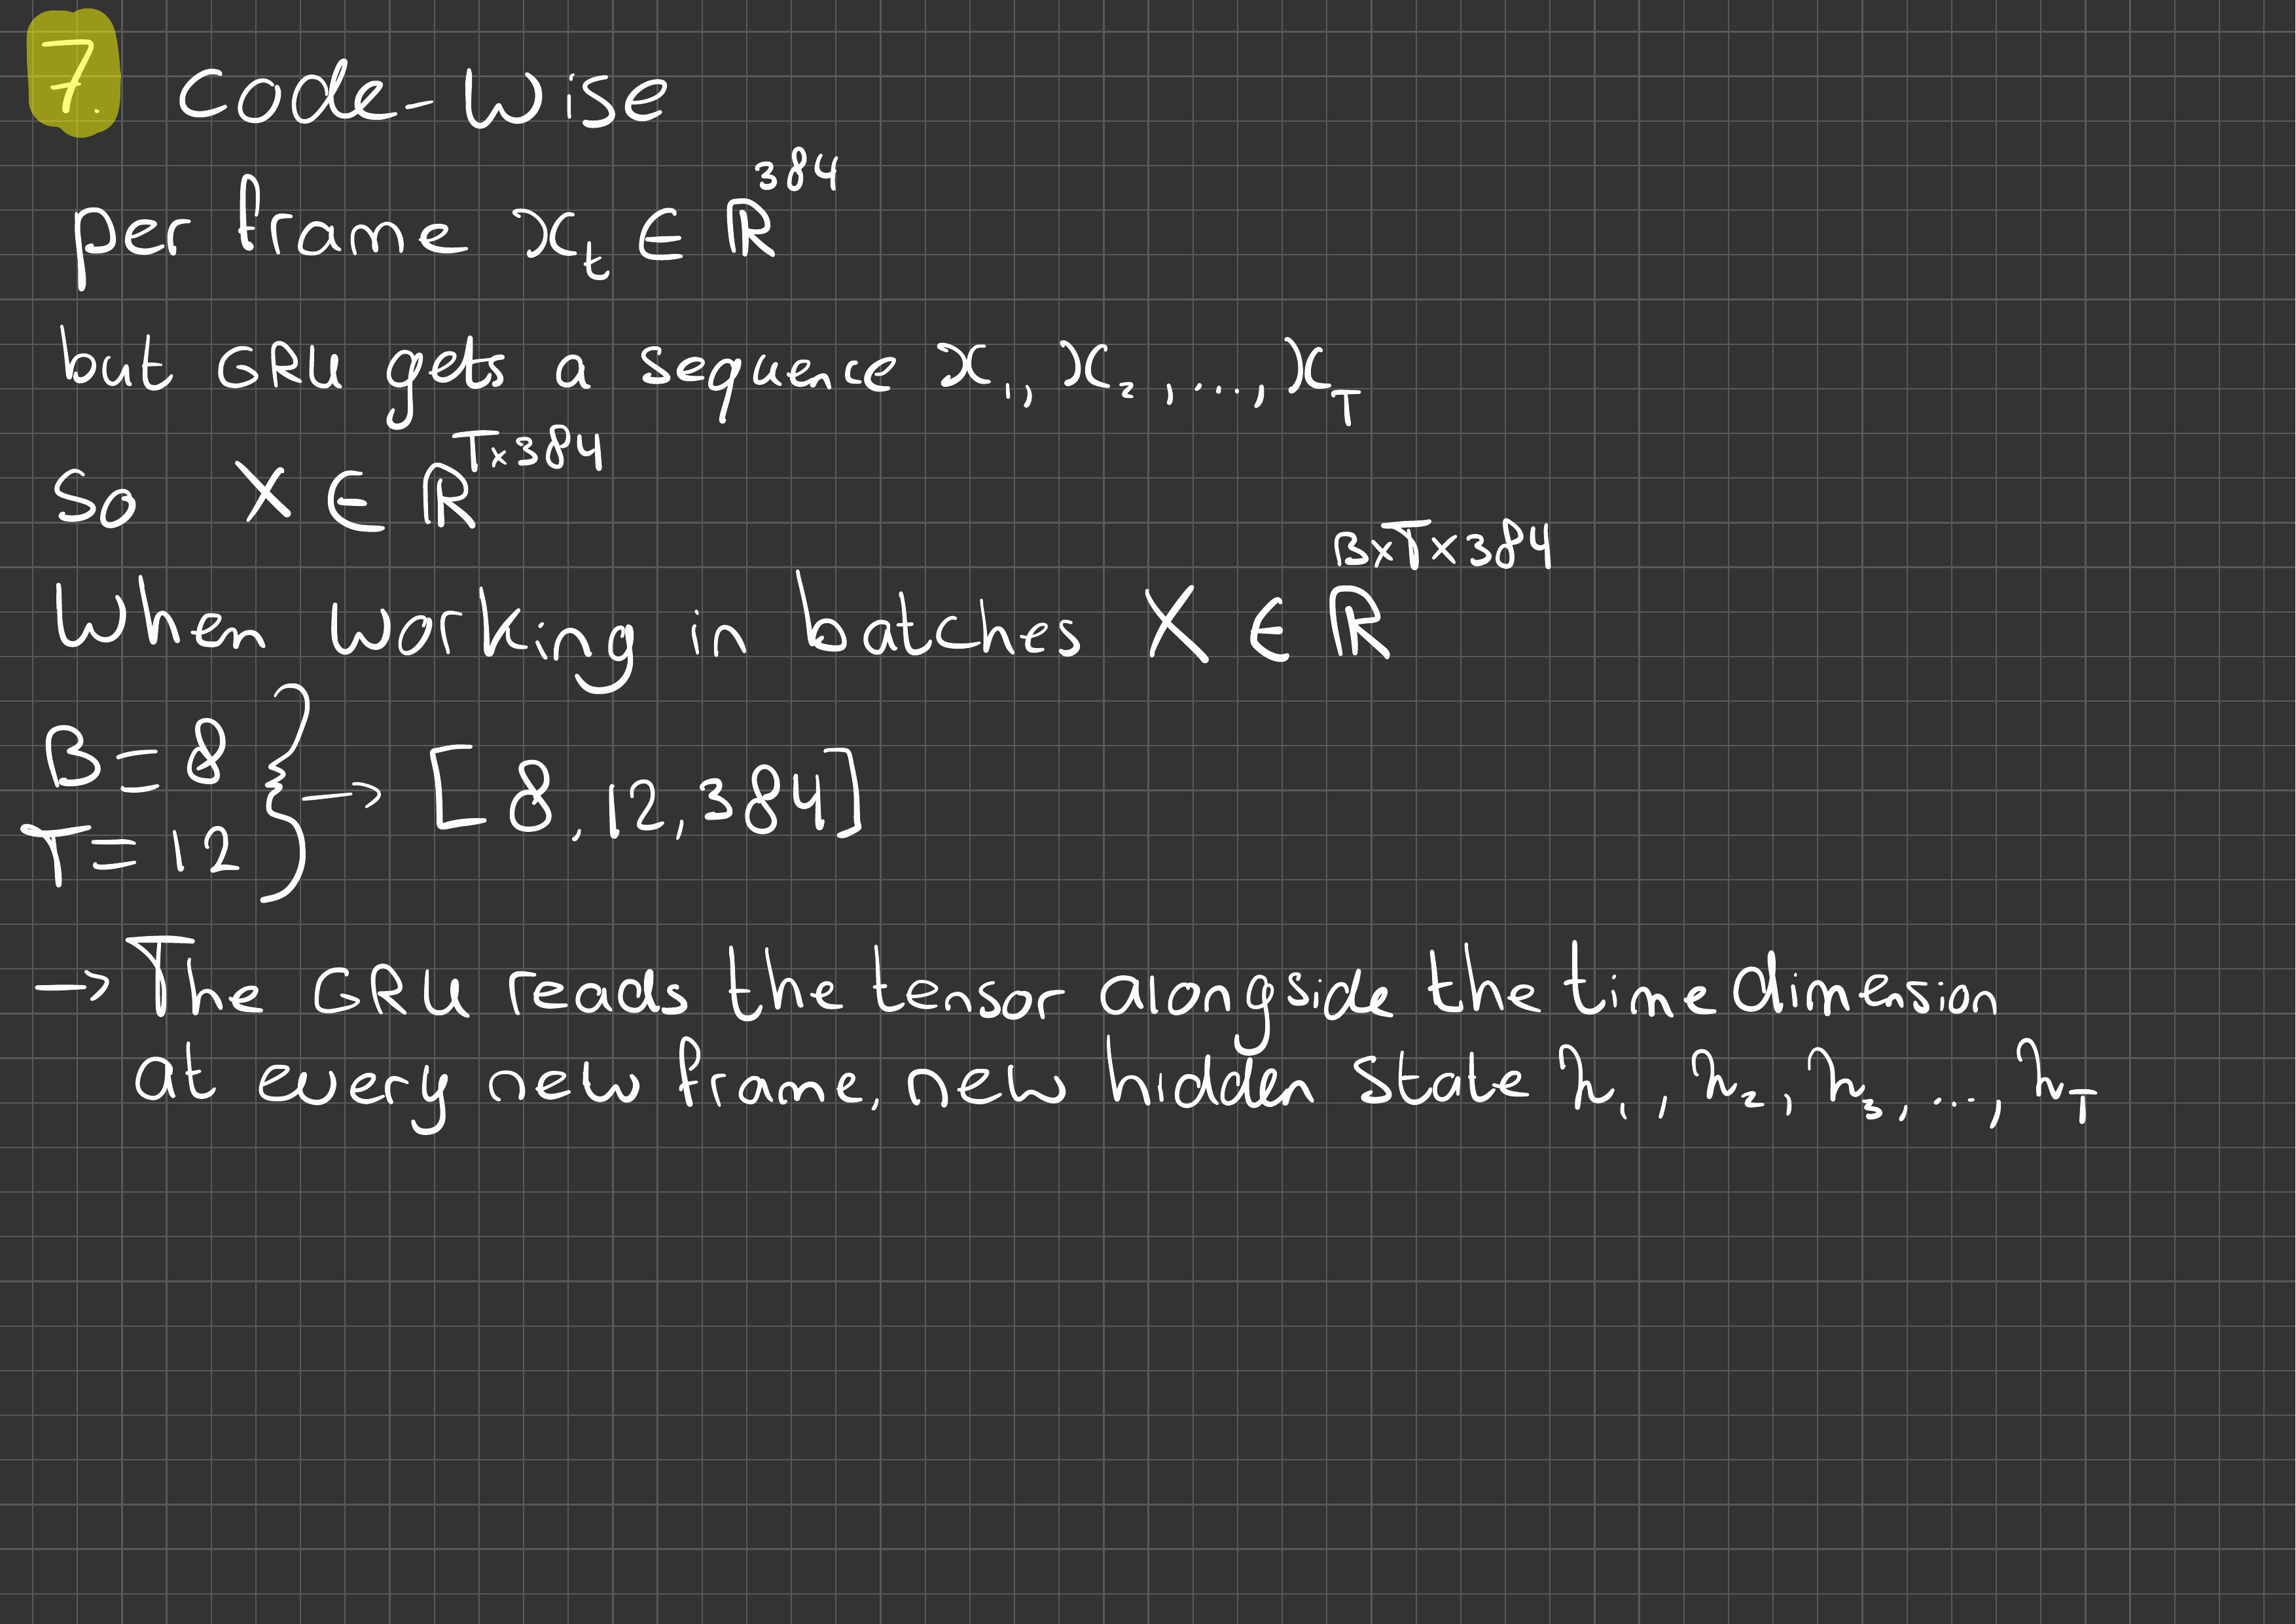 7. Code-Wise
per frame xₜ ∈ ℝ³⁸⁴
but GRU gets a sequence x₁, x₂, ..., x_T
So X ∈ ℝ^{T×384}
When working in batches X ∈ ℝ^{B×T×384}
B = 8
T = 12 } → [8, 12, 384]
→ The GRU reads the tensor alongside the time dimension
at every new frame, new hidden state h₁, h₂, h₃, ..., h_T